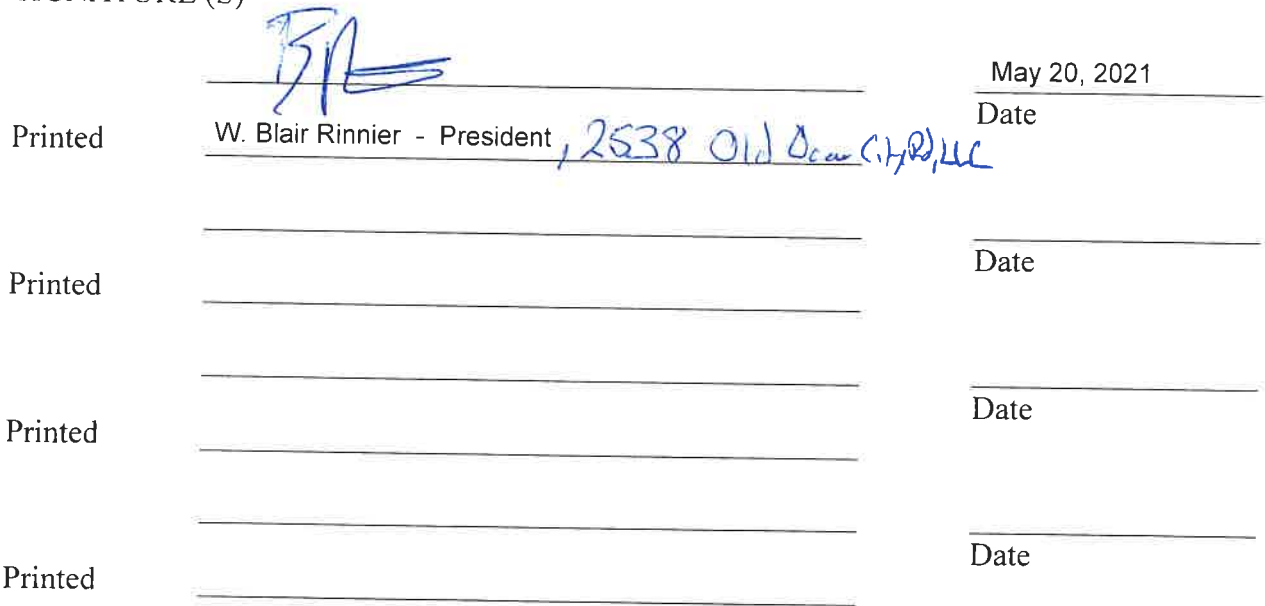 SIGNATURE (S)
May 20, 2021
Date
Printed W. Blair Rinnier - President, 2538 Old Ocean City Rd, LLC
Date
Printed
Date
Printed
Date
Printed